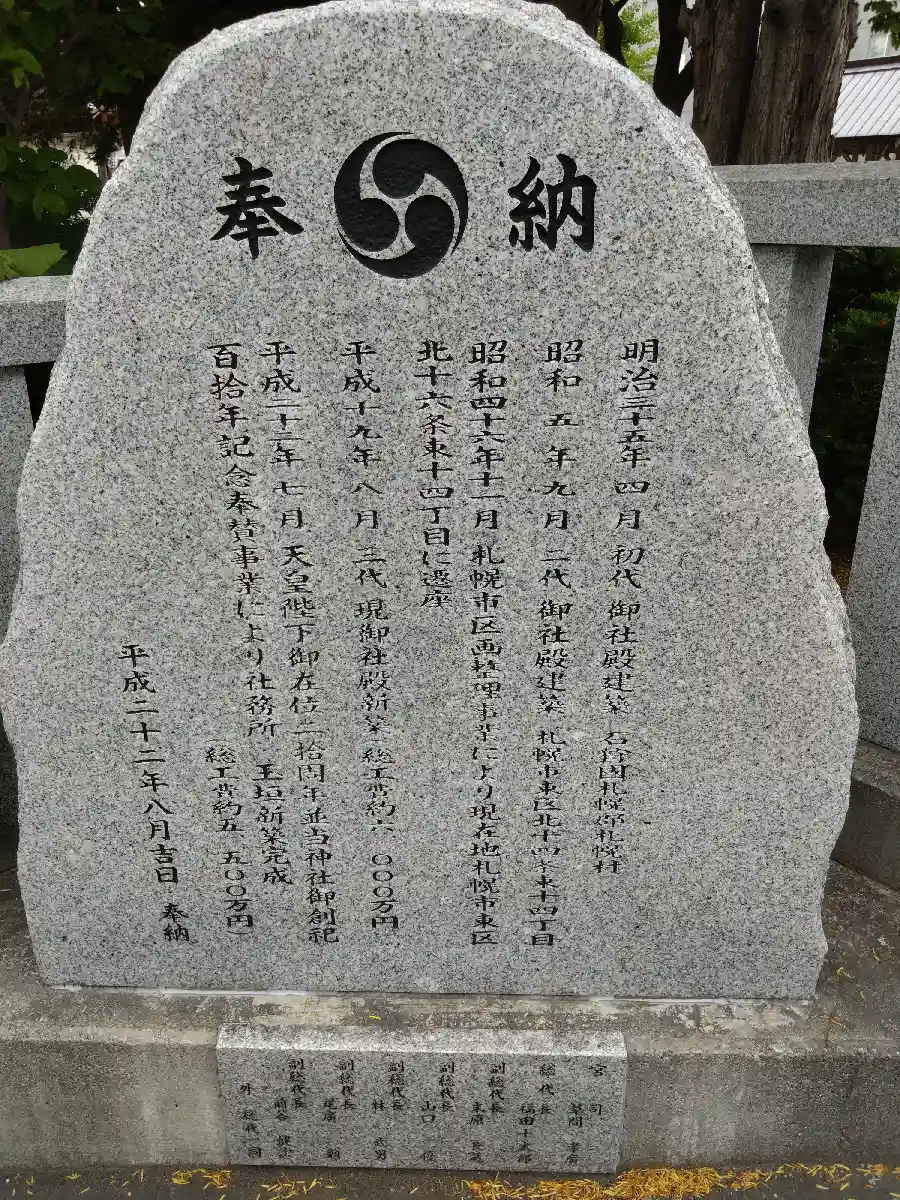 奉納
明治三十五年四月 初代 御社殿建築 石狩国札幌郡札幌村
昭和 五年九月 二代 御社殿建築 札幌市東区北十四条東十四丁目
昭和四十六年十一月 札幌市区画整理事業により現在地札幌市東区
北十六条東十四丁目に遷座
平成十九年八月 三代 現御社殿新築 総工費約六、〇〇〇万円
平成二十二年七月 天皇陛下御在位二拾周年並当神社御創祀
百拾年記念奉賛事業により社務所 玉垣新築完成
総工費約五、五〇〇万円
平成二十二年八月吉日 奉納
宮司 草間
総代長 福田
副総代長
副総代長 山口
副総代長 林
副総代長
副総代長
外 総代一同